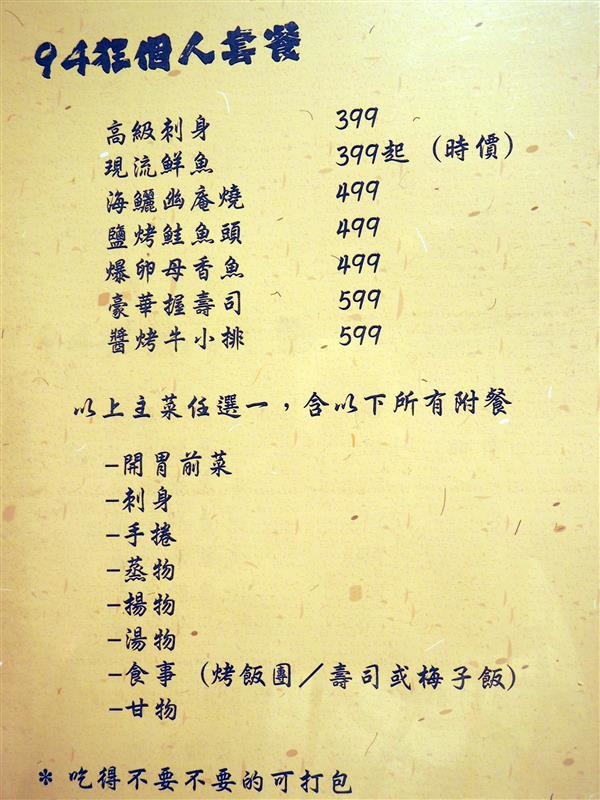 94狂個人套餐
高級刺身 399
現流鮮魚 399起 (時價)
海鱺幽庵燒 499
鹽烤鮭魚頭 499
爆卵母香魚 499
豪華握壽司 599
醬烤牛小排 599
以上主菜任選一，含以下所有附餐
-開胃前菜
-刺身
-手捲
-蒸物
-揚物
-湯物
-食事 (烤飯團／壽司或梅子飯)
-甘物
* 吃得不要不要的可打包